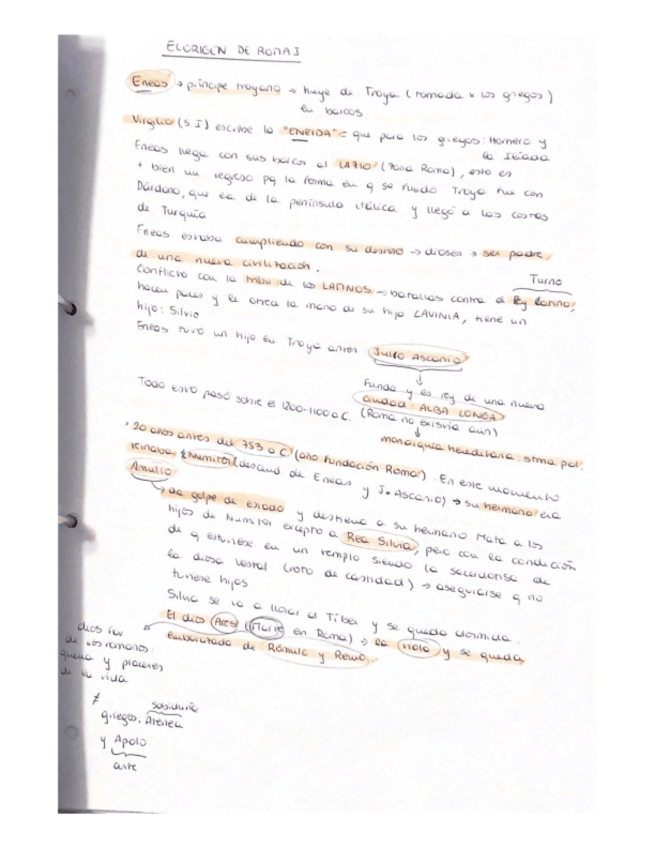 EL ORIGEN DE ROMA I
Eneas → príncipe troyano → huye de Troya (tomada x los griegos)
en barcos
Virgilio (S.I) escribe la "ENEIDA" = que para los griegos: Homero y
la Ilíada
Eneas llega con sus barcos al LAZIO (zona Roma), esto es
+ bien un regreso pq la forma en q se fundó Troya fue con
Dárdano, que es de la península itálica y llegó a las costas
de Turquía
Eneas estaba cumpliendo con su destino → dioses → ser padre
de una nueva civilización.
Turno
Conflicto con la tribu de los LATINOS → batallas contra el Rey Latino,
hacen paces y le ofrece la mano de su hija LAVINIA, tiene un
hijo: Silvio
Eneas tuvo un hijo en Troya antes: Julio Ascanio
↓
Funda y es rey de una nueva
ciudad: ALBA LONGA
Todo esto pasó sobre el 1200-1100 a.C. (Roma no existía aún)
↓
monarquía hereditaria: stma pol.
· 20 años antes del 753 a.C (año fundación Roma). En este momento
reinaba Numitor (descend de Eneas y J. Ascanio) → su hermano era
Amulio
→ da golpe de estado y destierra a su hermano. Mata a los
hijos de Numitor excepto a Rea Silvia, pero con la condición
de q estuviese en un templo siendo la sacerdotisa de
la diosa vestal (voto de castidad) → asegurarse q no
tuviese hijos
Silvia se va a llorar al Tíber y se queda dormida.
El dios Ares (Marte en Roma) → la viola y se queda
embarazada de Rómulo y Remo.
dios fav
de los romanos:
guerra y placeres
de la vida
≠ sabiduría
griegos: Atenea
y Apolo
arte